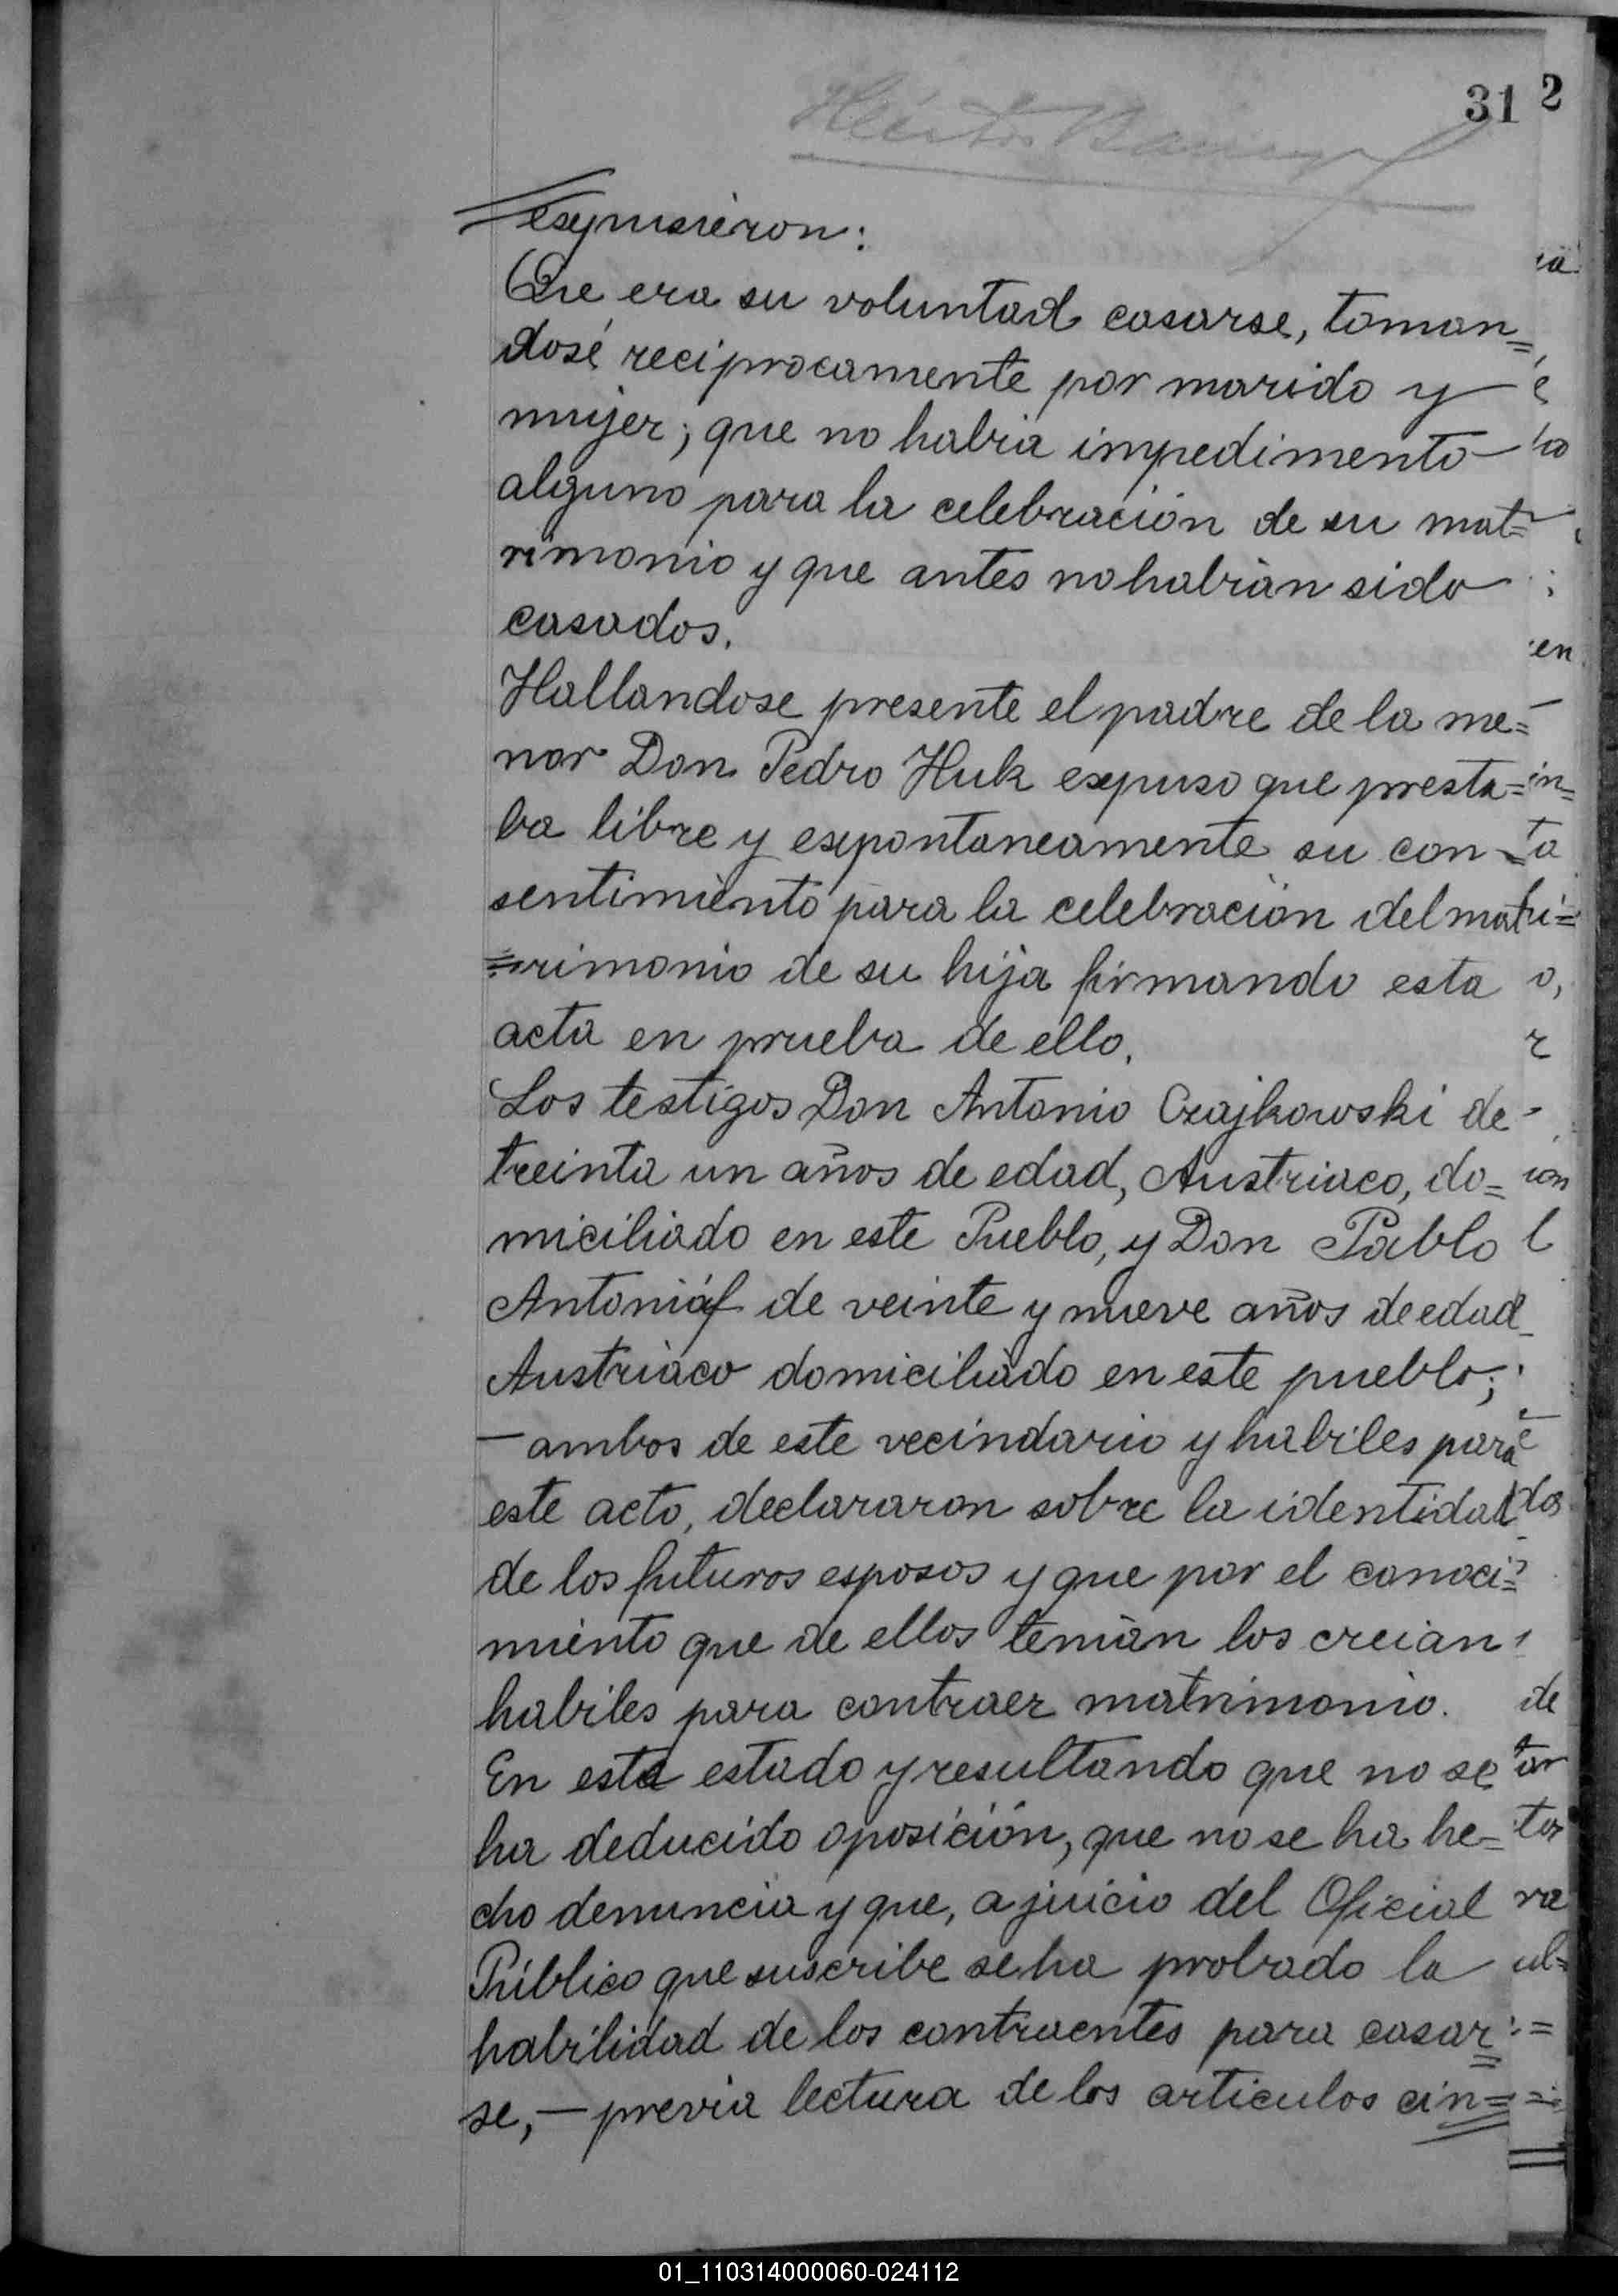 31 2
Héctor
esxpusieron:
Que era su voluntad casarse, toman=
dosé reciprocamente por marido y
mujer; que no habia impedimento
alguno para la celebración de su mat=
rimonio y que antes no habian sido
casados.
Hallandose presente el padre de la me=
nor Don Pedro Huk expuso que presta=
ba libre y expontaneamente su con=
sentimiento para la celebración del mat
=rimonio de su hija firmando esta
acta en prueba de ello.
Los testigos Don Antonio Czajkowski de
treinta un años de edad, Austriaco, do=
miciliado en este Pueblo, y Don Pablo
Antoniáf de veinte y nueve años de edad
Austriaco domiciliado en este pueblo;
— ambos de este vecindario y habiles para
este acto, declararon sobre la identidad
de los futuros esposos y que por el conoci=
miento que de ellos tenian los creian
habiles para contraer matrimonio.
En este estado y resultando que no se
ha deducido oposición, que no se ha he=
cho denuncia y que, a juicio del Oficial
Público que suscribe se ha probado la
habilidad de los contraentes para casar=
se, — previa lectura de los articulos cin=
01_110314000060-024112